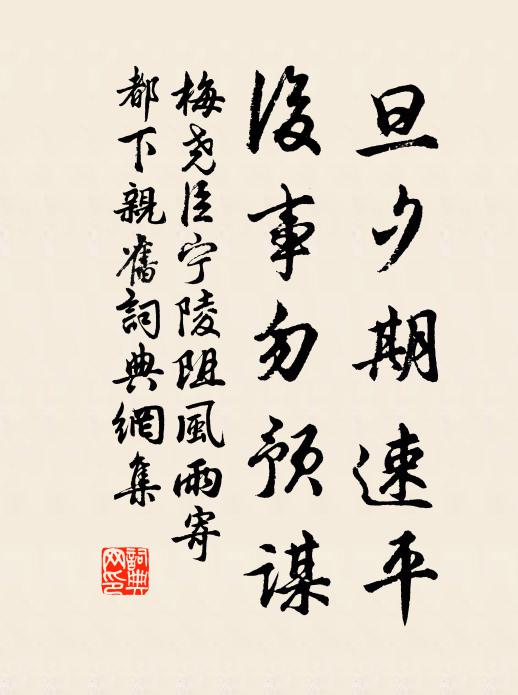 旦夕期速平
後事勿预謀
梅尧臣宁陵阻風雨寄
都下親舊詞典網集
詞典
网印